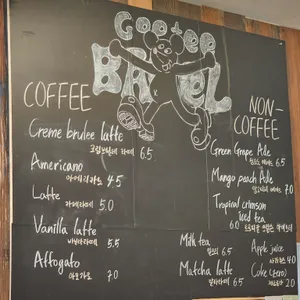 Gootee
BAGEL
COFFEE
Creme brulee latte
크림브륄레 라떼 6.5
Americano
아메리카노 4.5
Latte
카페라떼 5.0
Vanilla latte
바닐라라떼 5.5
Affogato
아포가토 7.0
NON-
COFFEE
Green Grape Ade
6.5
Mango peach Ade
7.0
Tropical crimson
Iced tea
6.0
Milk tea
밀크티 6.5
Matcha latte
말차라떼 6.5
Apple juice
사과주스 4.0
Coke (zero)
2.0